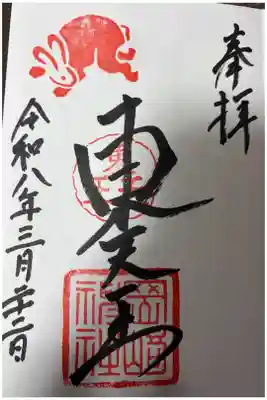 奉拝
東天王
岡崎神社
令和八年三月二十二日